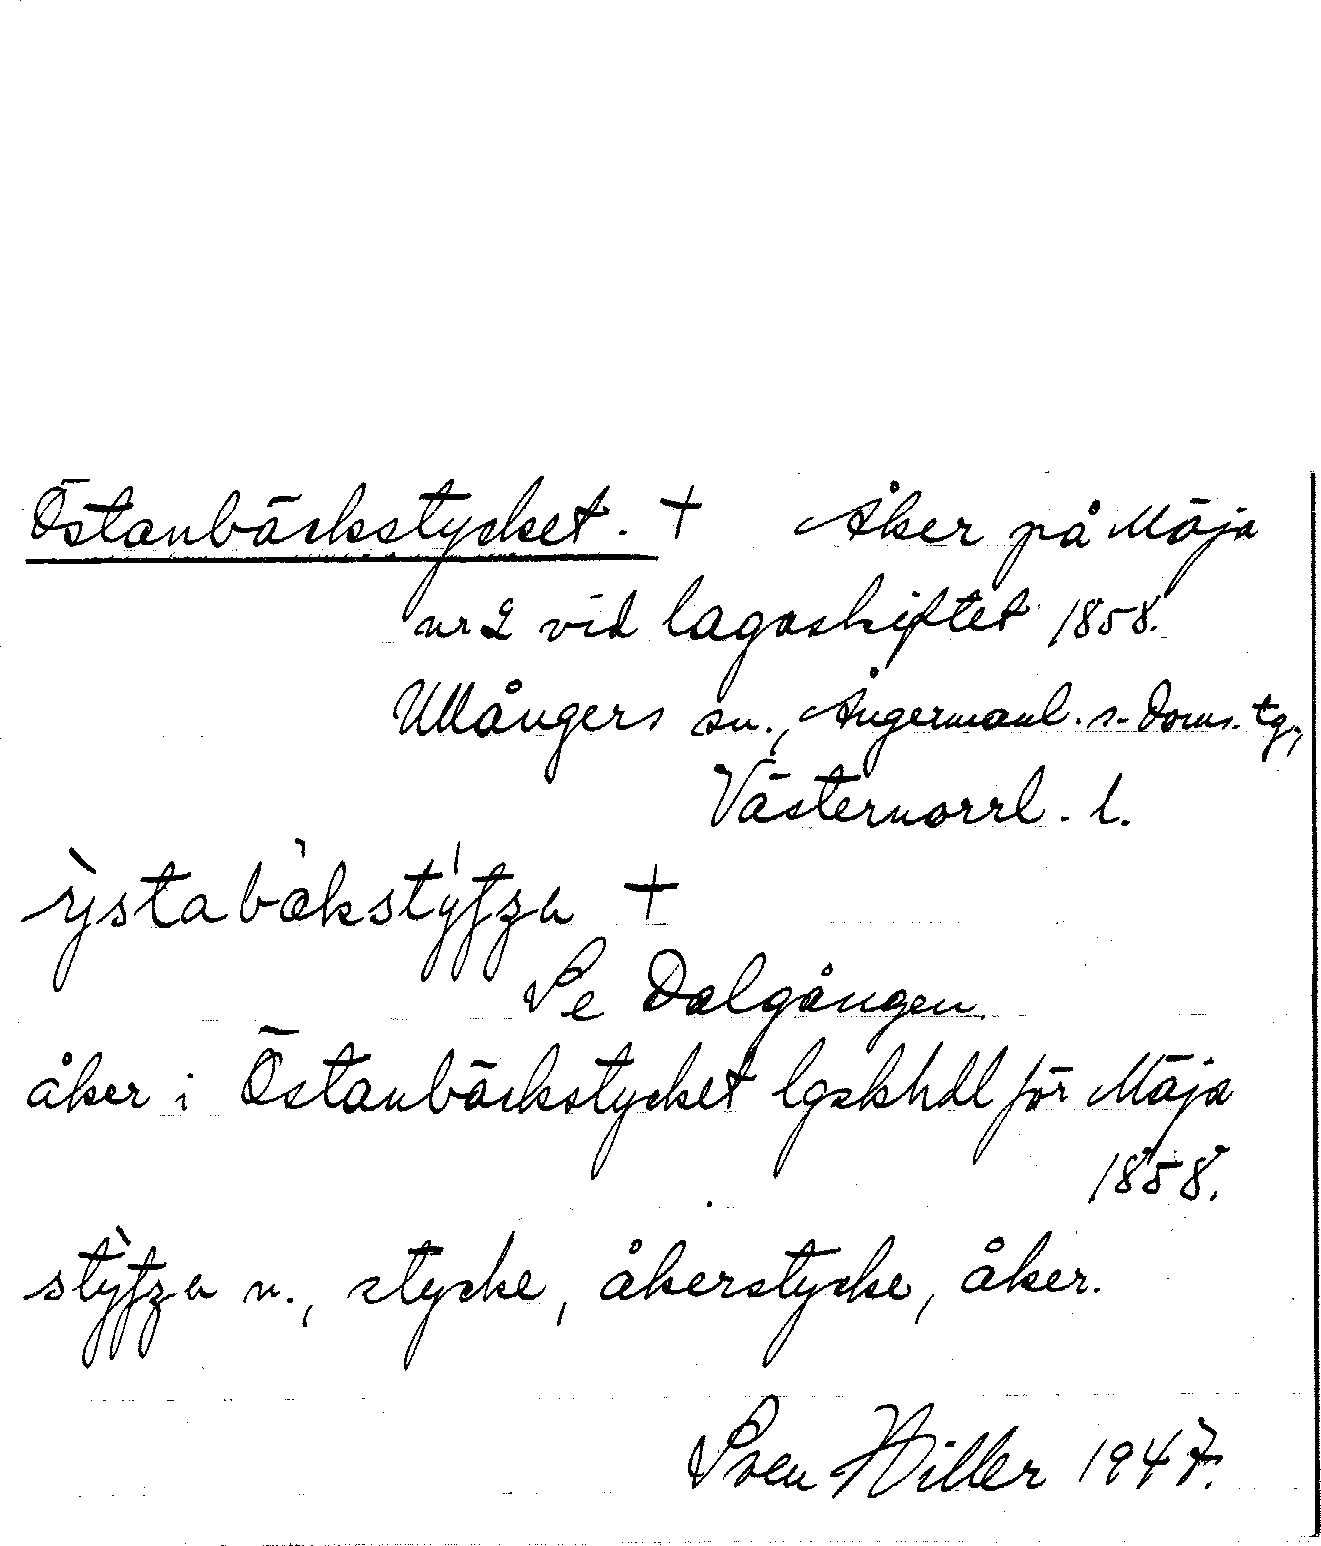 Östanbäckstycket. + Åker på Mäja
nr 2 vid lagaskiftet 1858.
Ullångers sn., Ångermanl. s. Doms. tg,
Västernorrl. l.
Se Dalgången
åker i Östanbäckstycket lgskhdl för Mäja
1858.
n., stycke, åkerstycke, åker.
Sven Hiller 1947.